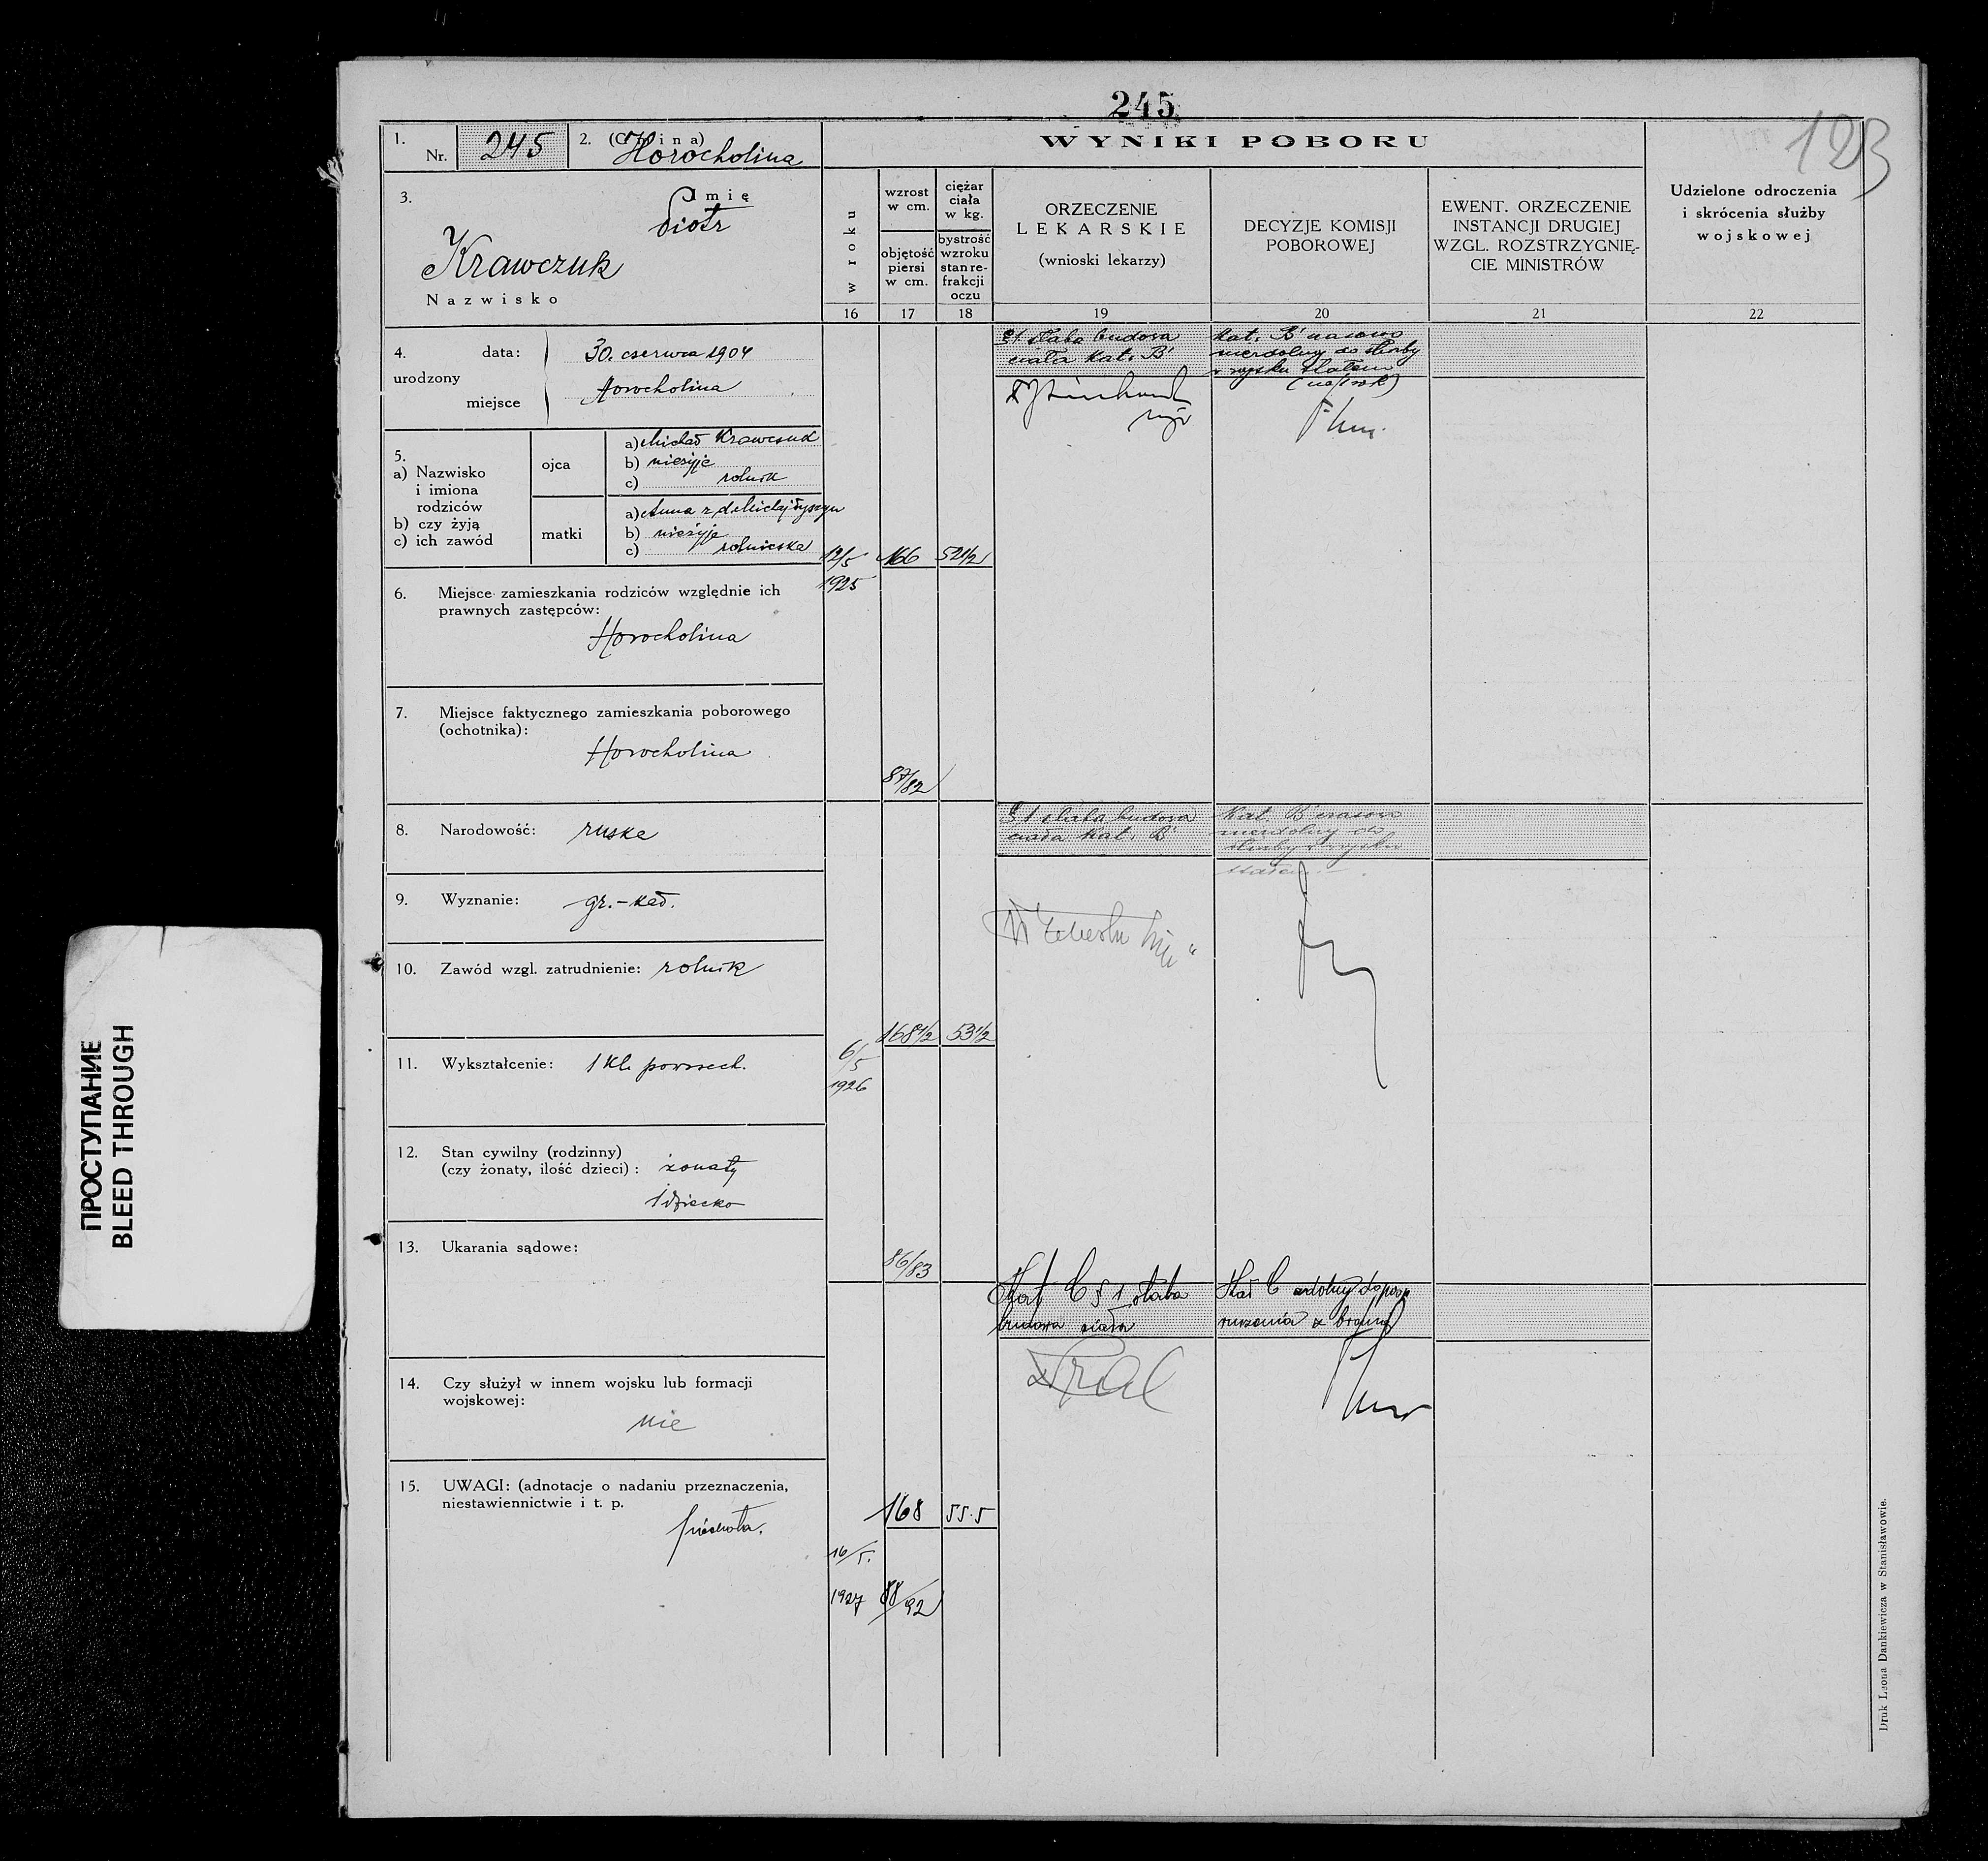 245
123
1.
Nr. 245
2. (Gmina)
Horocholina
WYNIKI POBORU
3.
Imię
Piotr
Krawczuk
Nazwisko
w roku
wzrost
w cm.
objętość
piersi
w cm.
ciężar
ciała
w kg.
bystrość
wzroku
stan re-
frakcji
oczu
ORZECZENIE
LEKARSKIE
(wnioski lekarzy)
DECYZJE KOMISJI
POBOROWEJ
EWENT. ORZECZENIE
INSTANCJI DRUGIEJ
WZGL. ROZSTRZYGNIĘ-
CIE MINISTRÓW
Udzielone odroczenia
i skrócenia służby
wojskowej
16 17 18 19 20 21 22
4.
urodzony
data: 30. czerwca 1904
miejsce Horocholina
5.
a) Nazwisko
i imiona
rodziców
b) czy żyją
c) ich zawód
ojca
a) Michał Krawczuk
b) nieżyje
c) rolnik
matki
a) Anna z
b) nieżyje
c) rolniczka
6. Miejsce zamieszkania rodziców względnie ich
prawnych zastępców:
Horocholina
7. Miejsce faktycznego zamieszkania poborowego
(ochotnika):
Horocholina
8. Narodowość: ruska
9. Wyznanie: gr.-kat.
10. Zawód wzgl. zatrudnienie: rolnik
11. Wykształcenie: 1 kl. powszech.
12. Stan cywilny (rodzinny)
(czy żonaty, ilość dzieci): żonaty
1 dziecko
13. Ukarania sądowe:
14. Czy służył w innem wojsku lub formacji
wojskowej:
nie
15. UWAGI: (adnotacje o nadaniu przeznaczenia,
niestawiennictwie i t. p.
piechota.
12/5
1925
166
52 1/2
87/82
§1 słaba budowa
ciała kat. B
kat. B czasowo
niezdolny do służby
w wojsku stałem
(na 1 rok)
6/5
1926
168 1/2
53 1/2
86/83
§1 słaba budowa
ciała kat. B
Kat. B czasowo
niezdolny do
służby w wojsku
stałem.
16/5.
1927
168
55.5
88/92
Kat C § 1 słaba
budowa ciała
Kat C zdolny do posp.
ruszenia z bronią
Druk Leona Dankiewicza w Stanisławowie.
ПРОСТУПАНИЕ
BLEED THROUGH